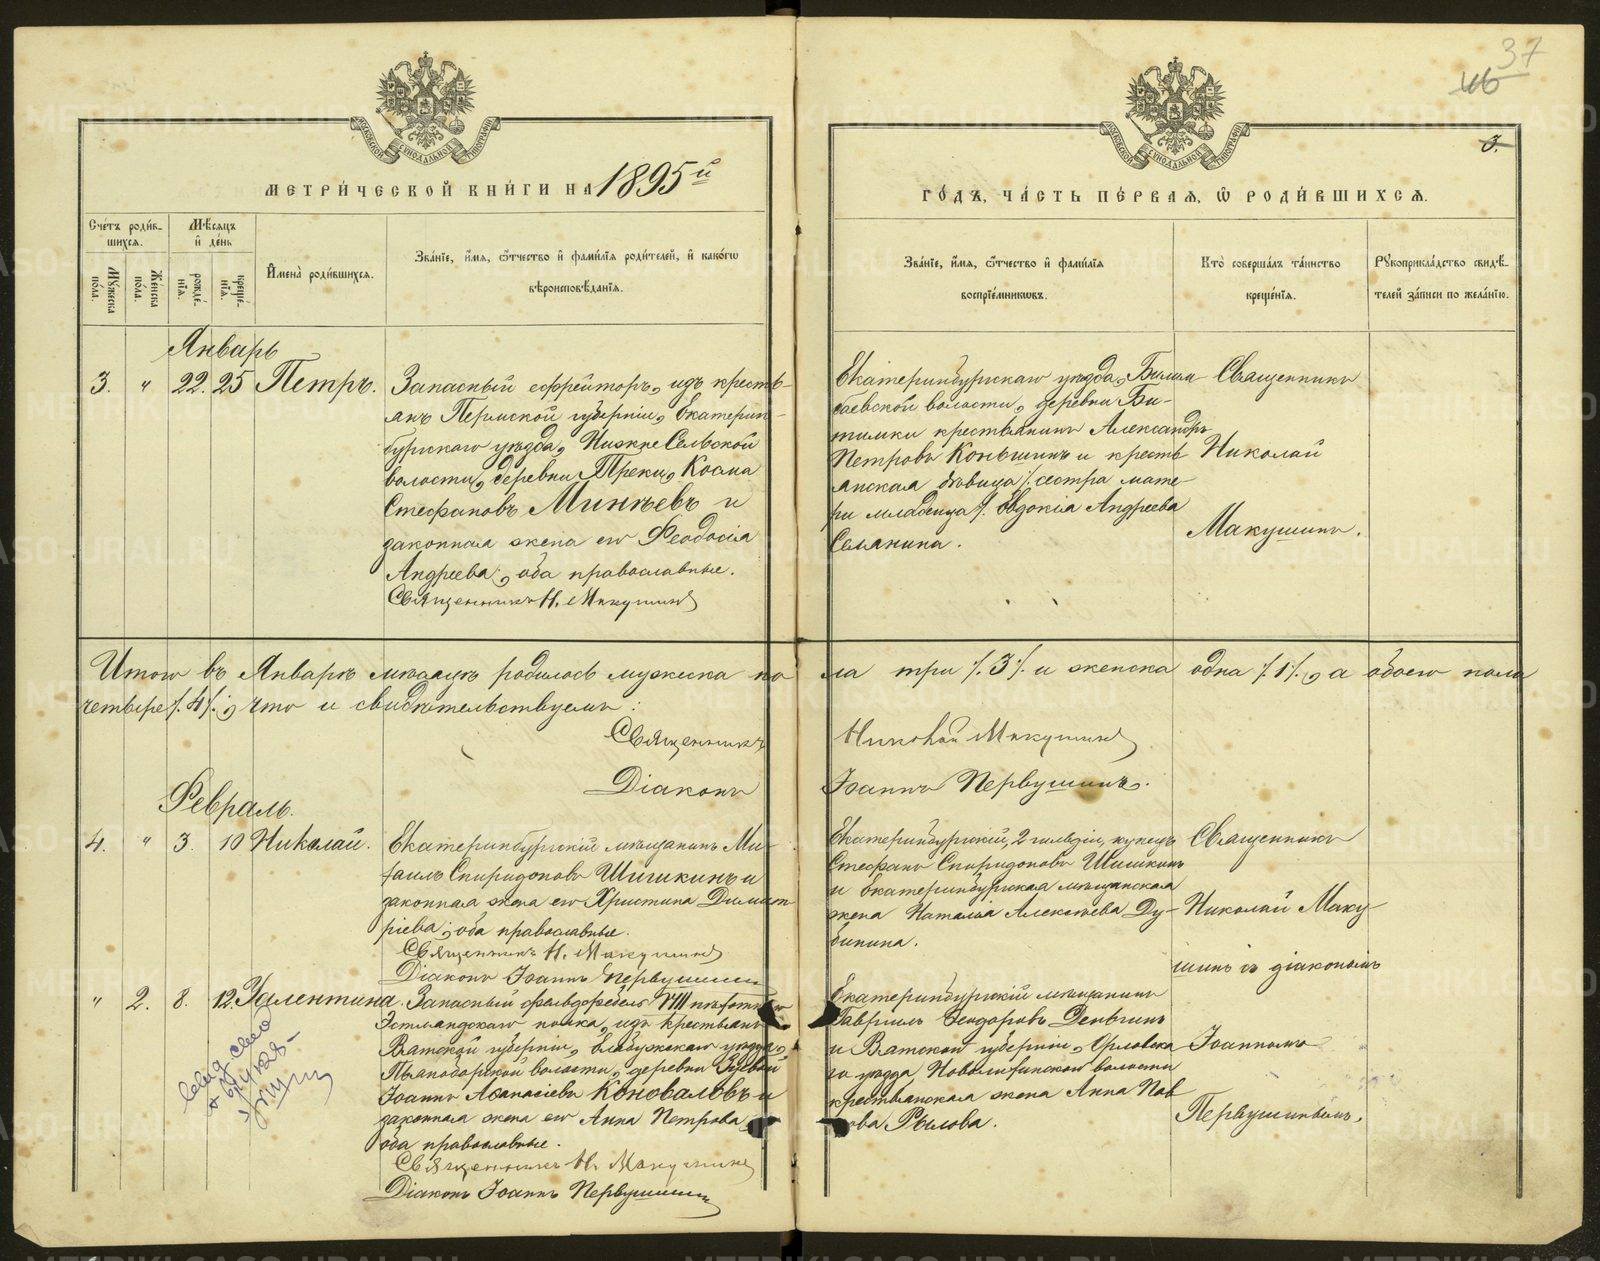 37
46
3.
МОСКОВСКОЙ СУНОДАЛЬНОЙ ТИПОГРАФІИ
МОСКОВСКОЙ СУНОДАЛЬНОЙ ТИПОГРАФІИ
МЕТРИ́ЧЕСКОЙ КНИ́ГИ НА 1895й
ГО́ДЪ, ЧА́СТЬ ПЕ́РВАЯ, Ѡ РОДИ́ВШИХСЯ.
Сче́тъ роди́в-
шихся.
Му́жеска по́ла.
Же́нска по́ла.
Мѣ́сяцъ
и҆ де́нь
рожде́-
нїя.
креще́-
нїя.
И҆мена̀ роди́вшихся.
Зва́нїе, и҆́мя, ѻ҆́тчество и҆ фами́лїя роди́телей, и҆ како́гѡ
вѣроисповѣ́данїя.
Зва́нїе, и҆́мя, ѻ҆́тчество и҆ фами́лїя
воспрїе́мникѡвъ.
Кто̀ соверша́лъ та́инство
креще́нїя.
Рꙋкоприкла́дство свидѣ́-
телей за́писи по жела́нїю.
Январь
3. " 22. 25 Петръ.
Запасный ефрейторъ, изъ кресть-
янъ Пермской губерніи, Екатерин-
бургскаго уѣзда, Нижне Сельской
волости, деревни Треки, Косма
Стефановъ Минѣевъ и
законная жена его Феодосія
Андреева, оба православные.
Священникъ Н. Макушинъ
Екатеринбургскаго уѣзда, Билим-
баевской волости, деревни Би-
тимки крестьянинъ Александръ
Петровъ Коньшинъ и кресть
янская дѣвица /: сестра мате-
ри младенца /: Евдокія Андреева
Селянина.
Священникъ
Николай
Макушинъ.
Итого въ Январѣ мѣсяцѣ родилось мужеска по
ла три /: 3 /: и женска одна /: 1 /:, а обоего пола
четыре /: 4 /:, что и свидѣтельствуемъ:
Священникъ
Николай Макушинъ
Діаконъ
Іоаннъ Первушинъ.
Февраль.
4. " 3. 10 Николай.
Екатеринбургскій мѣщанинъ Ми-
хаилъ Спиридоновъ Шишкинъ и
законная жена его Христина Димит
ріева, оба православные.
Священникъ Н. Макушинъ
Діаконъ Іоаннъ Первушинъ
Екатеринбургскій, 2 гильдіи, купецъ
Стефанъ Спиридоновъ Шишкинъ
и Екатеринбургская мѣщанская
жена Наталія Алексѣева Ду-
бинина.
Священникъ
Николай Маку
шинъ съ діакономъ
" 2. 8. 12. Валентина.
Запасный фельдфебель VIII пѣхотнаго
Эстляндскаго полка, изъ крестьянъ
Вятской губерніи, Елабужскаго уѣзда,
Пьяноборской волости, деревни Зуевой
Іоаннъ Аѳанасіевъ Коноваловъ и
законная жена его Анна Петрова,
оба православные.
Священникъ Н. Макушинъ
Діаконъ Іоаннъ Первушинъ
Екатеринбургскій мѣщанинъ
Гавріилъ Ѳеодоровъ Деньгинъ
и Вятской губерніи, Орловска
го уѣзда волости
крестьянская жена Анна Пав
лова Рылова.
Іоанномъ
Первушинымъ.